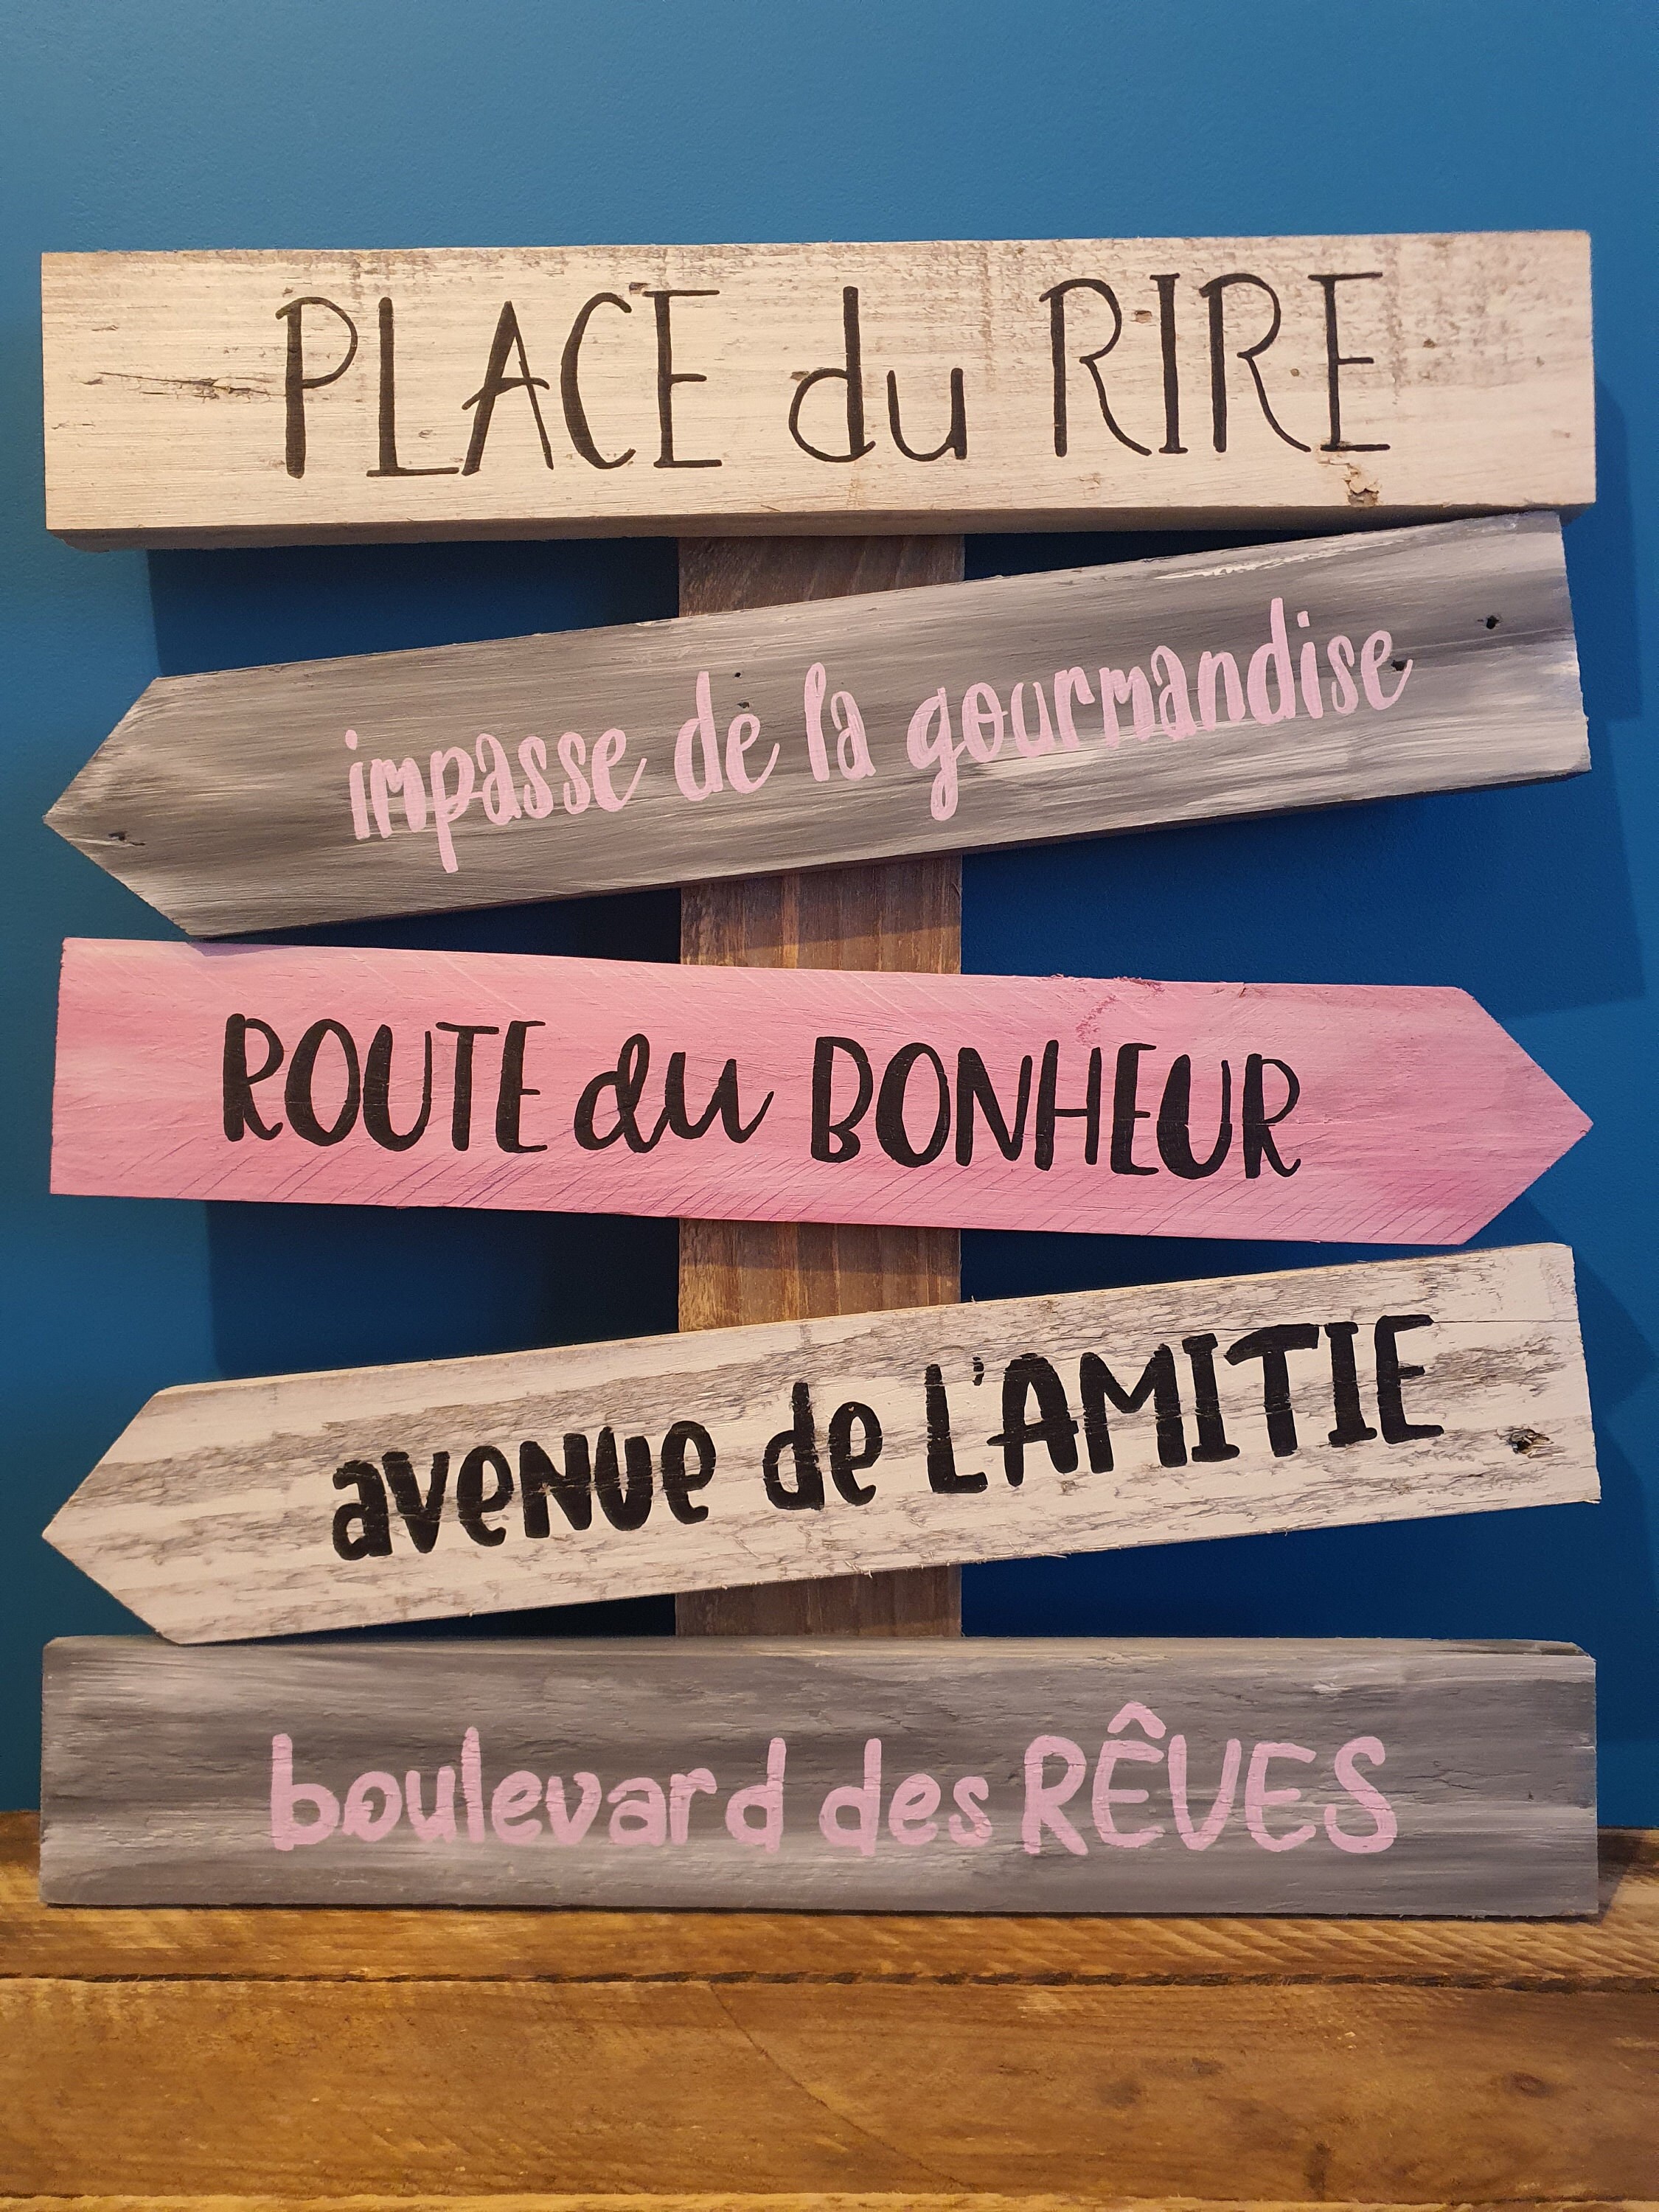 PLACE du RIRE
impasse de la gourmandise
ROUTE du BONHEUR
avenue de L'AMITIE
boulevard des RÊVES